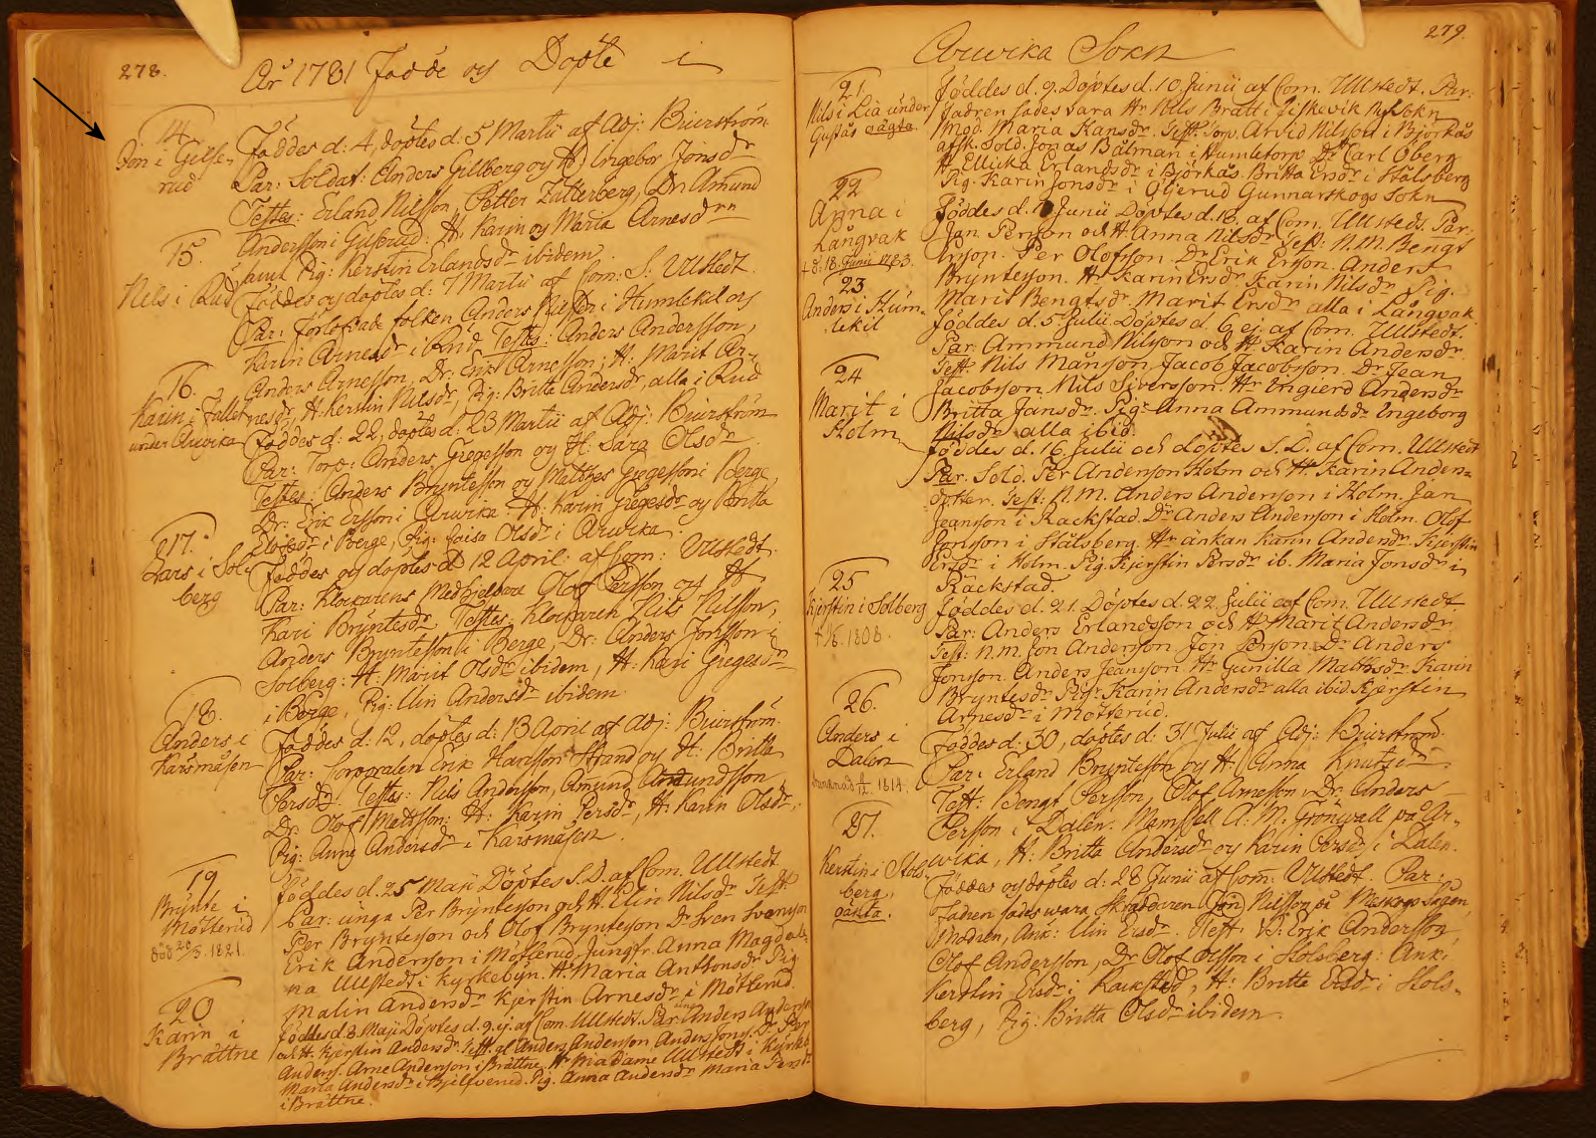 278.
År 1781 Födde og Döpte i
14
Jon i Gilse-
rud
Föddes d: 4, döptes d: 5 Martii af Adj: Biurström
Par: Soldat: Anders Gillberg og H: Ingebor Jonsdr
Testes: Erland Nilsson, Petter Zätterberg, Dr Amund
Andersson i Gilserud: H. Karin og Maria Arnesdrn
Pig: Kerstin Erlandsdr ibidem
15.
Nils i Rud
Föddes og döptes d: 7 Martii af Com: S: Ullstedt.
Par: förlofvade folken Anders Nilsson i Humlekil og
Karin Arnesdr i Rud Testes: Anders Andersson,
Anders Arnesson, Dr: Erik Arnesson; H: Marit Ar-
nesdr, H. Kerstin Nilsdr, Pig: Britta Andersdr, alla i Rud
16.
Karin i Fallet
under Arwika
Föddes d: 22, döptes d: 23 Martii af Adj: Biurström
Par: Torp: Anders Gregesson og H: Sara Olsdr
Testes: Anders Bryntesson og Mattes Gregesson i Berge,
Dr: Erik Ersson i Arwika H: Karin Gregesdr og Britta
Olofsdr i Berge, Pig: Caisa Olsdr i Arwika.
17.
Lars i Sol-
berg
Föddes og döptes d 12 April: af Com: Ullstedt.
Par: Klockarens Medhjelpare Olof Persson og H:
Kari Bryntesdr Testes: Klockaren Nils Nilsson,
Anders Bryntesson i Berge, Dr: Anders Jonsson i
Solberg: H: Marit Olsdr ibidem, H: Kari Gregesdr
i Berge, Pig: Elin Andersdr ibidem
18.
Anders i
Karsmåsen
Föddes d: 12, döptes d: 13 April af Adj: Biurström.
Par: Corporalen Erik Hansson Strand og H: Britta
Persdr. Testes: Nils Andersson, Amund Amundsson
Dr. Olof Mattsson: H: Karin Persdr, H: Karin Olsdr,
Pig: Anna Andersdr i Karsmåsen
19
Brynte i
Mötterud
död 20/5. 1821.
föddes d. 25 Maji Döptes S.D. af Com. Ullstedt
Par: unga Per Bryntesson och H. Elin Nilsdr Test:
Per Bryntesson och Olof Bryntesson Dr Sven Svensson
Erik Anderson i Mötterud Jungfr. Anna Magdale-
na Ullstedt i Kyrkebyn. Hr Maria Anthonsdr Pig
Malin Andersdr Kjerstin Arnesdr i Mötterud.
20
Karin i
Brättne
föddes d. 8 Maji Döptes d. 9. ej. af Com. Ullstedt. Par: unga Anders Anderson
och H. Kjerstin Andersdr. Test. gl Anders Anderson Anders Jons. Dr Per
Anders. Arne Anderson i Brättne Hr Madame Ullstedt i Kyrkeb
Maria Andersdr i Bjelfverud. Pig. Anna Andersdr Maria Persdr
i Brättne.
279.
Arwika Sokn
21.
Nils i Lia under
Gustås oägta.
föddes d. 9. Döptes d. 10 Junii af Com. Ullstedt. Par:
fadren sades vara Hr Nils Bratt i Jiskevik Ny Sokn
Mod. Maria Hansdr. Test. Torp. Arvid Nilsson i Björkås
afsk. Sold. Jonas Bålman i Humletorp Dr Carl Öberg
H Ellicka Erlandsdr i Björkås. Britta Ersdr i Stålsberg
Pig. Karin Jonsdr i Öljerud Gunnarskogs Sokn
22
Anna i
Långvak
† d. 18 Junii 1783.
föddes d. Junii Döptes d. 18. af Com. Ullstedt. Par:
Jan Person och H. Anna Nilsdr Test: N.M. Bengt
Erson. Per Olofsson. Dr Erik Erson. Anders
Bryntesson. Hr Karin Ersdr. Karin Nilsdr Pig.
Marit Bengtsdr. Marit Ersdr alla i Långvak
23
Anders i Hum-
lekil
föddes d. 5 Julii Döptes d. 6 ej. af Com. Ullstedt.
Par. Ammund Nilsson och H Karin Andersdr
Test. Nils Månsson Jacob Jacobsson. Dr Jean
Jacobsson Nils Siversson. Hr Engierd Andersdr
Britta Jansdr. Pigr Anna Ammundsdr Engeborg
Nilsdr alla ibid.
24
Marit i
Holm
föddes d. 16. Julii och döptes S.D. af Com. Ullstedt
Par. Sold. Per Anderson Holm och H. Karin Anders-
dotter. Test: N.M. Anders Anderson i Holm. Jan
Jeansson i Rackstad. Dr Anders Anderson i Holm. Olof
Jonsson i Stålsberg. Hr änkan Karin Andersdr. Kjerstin
Ersdr i Holm. Pig. Kjerstin Persdr ib. Maria Jonsdr i
Rackstad.
25
Kjerstin i Solberg
1808.
föddes d. 21. Döptes d. 22 Julii af Com. Ullstedt
Par: Anders Erlandsson och H Marit Andersdr
Test: N.M. Jon Anderson Jon Person Dr Anders
Jonsson. Anders Jeansson. Hr Gunilla Mattesdr Karin
Bryntesdr Pigr Karin Andersdr alla ibid Kjerstin
Arnesdr i Mötterud.
26.
Anders i
Dalen
1814.
Föddes d: 30, döptes d: 31 Julii af Adj: Biurström.
Par: Erland Bryntesson og H: Anna Knutsdr.
Test: Bengt Persson, Olof Arnesson, Dr. Anders
Persson i Dalen. Mamsell A: M: Grönwall på Ar-
wika, H: Britta Andersdr og Karin Persdr i Dalen.
27.
Kerstin i Stols-
berg,
oäkta.
Föddes og döptes d: 28 Junii af Com: Ullstedt. Par:
Fadren sades wara Skräddaren Jon Nilsson på Skogen,
Modren, Enk: Elin Ersdr. Test: N: Erik Andersson,
Olof Andersson, Dr Olof Olsson i Stolsberg: Enk:
Kerstin Ersdr i Rackstad, H: Britta Ersdr i Stols-
berg, Pig: Britta Olsdr ibidem.